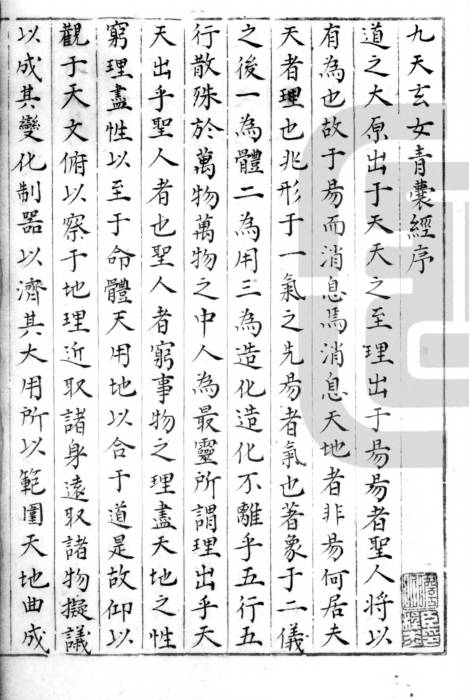 九天玄女青囊經序
道之大原出于天天之至理出于昜昜者聖人將以
有為也故于昜而消息焉消息天地者非昜何居夫
天者理也兆形于一氣之先昜者氣也著象于二儀
之後一為體二為用三為造化造化不離乎五行五
行散殊於萬物萬物之中人為最靈所謂理出乎天
天出乎聖人者也聖人者窮事物之理盡天地之性
窮理盡性以至于命體天用地以合于道是故仰以
觀于天文俯以察于地理近取諸身遠取諸物擬議
以成其變化制器以濟其大用所以範圍天地曲成